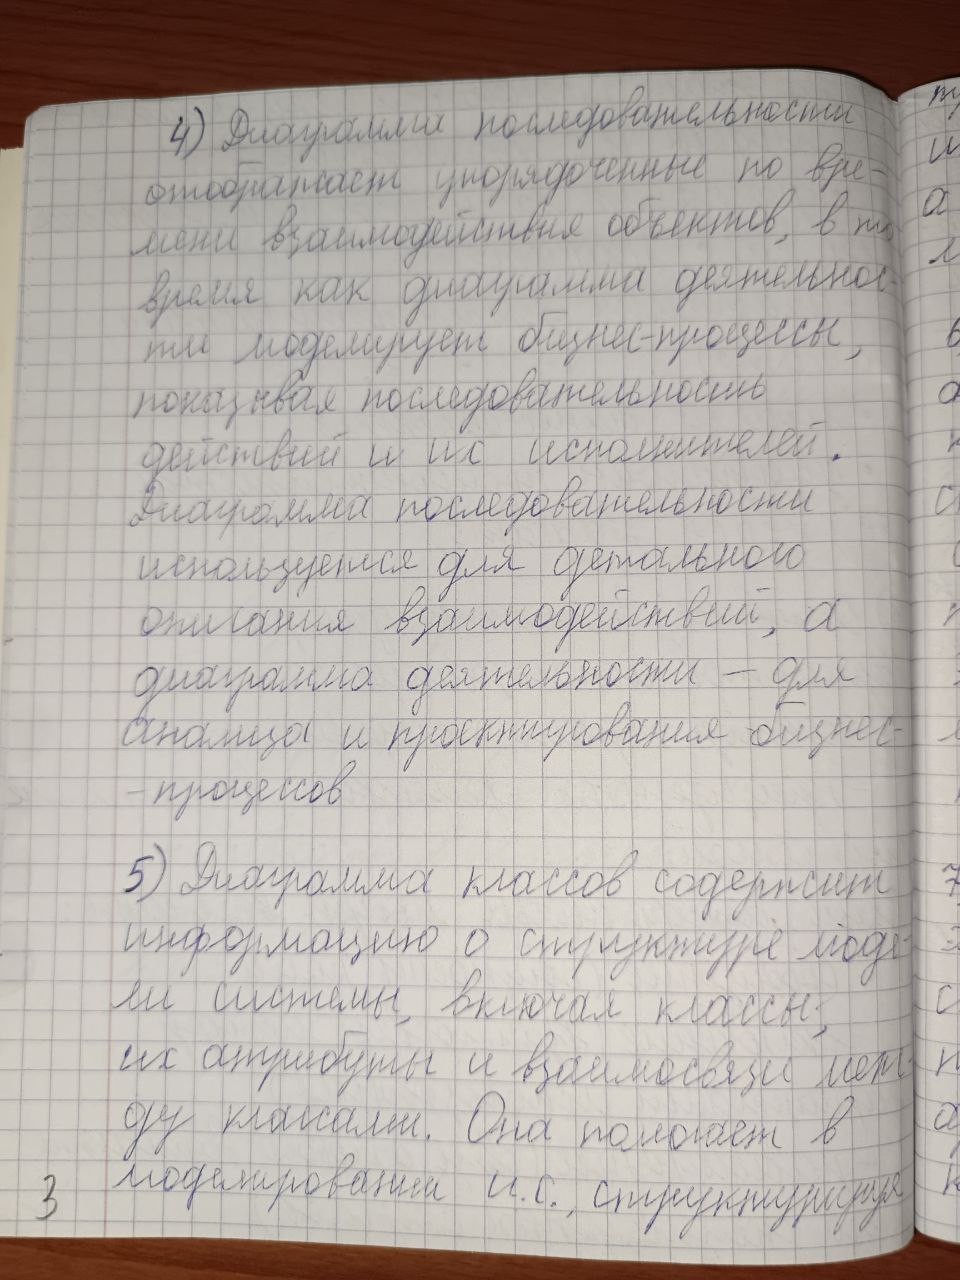 4) Диаграмма последовательности
отображает упорядоченные по вре-
мени взаимодействия объектов, в то
время как диаграмма деятельнос-
ти моделирует бизнес-процессы,
показывая последовательность
действий и их исполнителей.
Диаграмма последовательности
используется для детального
описания взаимодействий, а
диаграмма деятельности – для
анализа и проектирования бизнес-
-процессов
5) Диаграмма классов содержит
информацию о структуре моде-
ли системы, включая классы,
их атрибуты и взаимосвязи меж-
ду классами. Она помогает в
моделировании и.с., структурируя
3